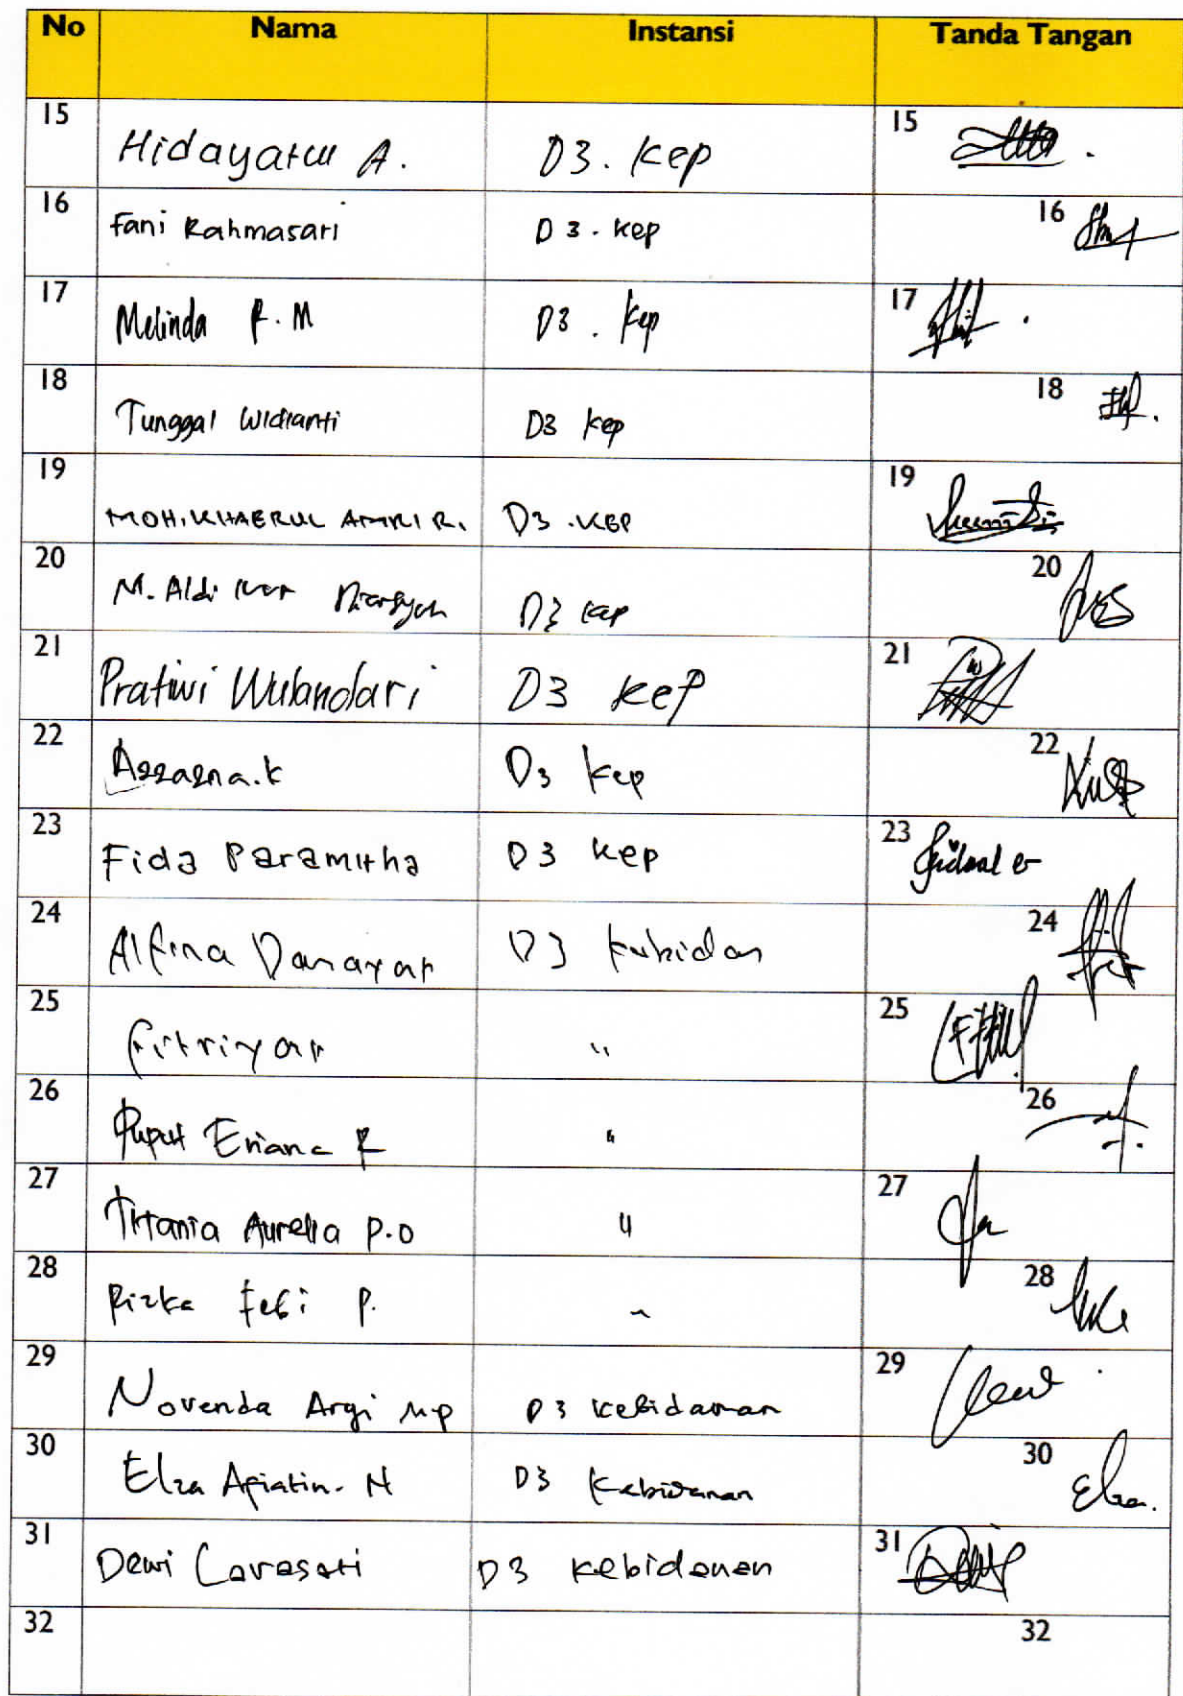 No Nama Instansi Tanda Tangan
15 Hidayatul A. D3. Kep 15
16 Fani Rahmasari D3. Kep 16
17 Melinda F. M D3. Kep 17
18 Tunggal Widianti D3 Kep 18
19 MOH. KHAERUL AMRI R. D3. KEP 19
20 M. Aldi D3 Kep 20
21 Pratiwi Wulandari D3 Kep 21
22 Azzazna.k D3 Kep 22
23 Fida Paramitha D3 Kep 23
24 Alfina Danayati D3 Kebidan 24
25 Fitriyati " 25
26 Puput Eriana R " 26
27 Titania Aurelia P.O " 27
28 Rizka Febi P. " 28
29 Novenda Argi MP D3 Kebidanan 29
30 Elza Afiatin. N D3 Kebidanan 30 Elza.
31 Dewi Larasati D3 Kebidanan 31
32 32